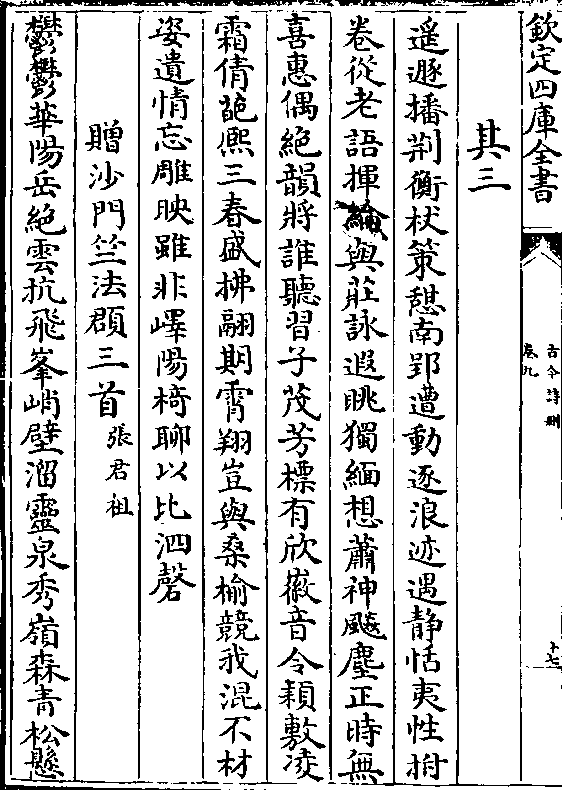 欽定四庫全書
古今詩刪
卷九
十七
其三
遥遯播荆衡杖策憇南郢遭動逐浪迹遇静恬夷性拊
卷從老語揮綸與莊詠遐眺獨緬想蕭神飈塵正時無
喜惠偶絶韻將誰聽習子茂芳標有欣徽音令穎敷凌
霜倩葩熈三春盛拂翮期霄翔豈與桑榆競我混不材
姿遺情忘雕映雖非嶧陽椅聊以比泗磬
贈沙門竺法頵三首張君祖
鬱鬱華陽岳絶雲抗飛峯峭壁溜靈泉秀嶺森青松懸